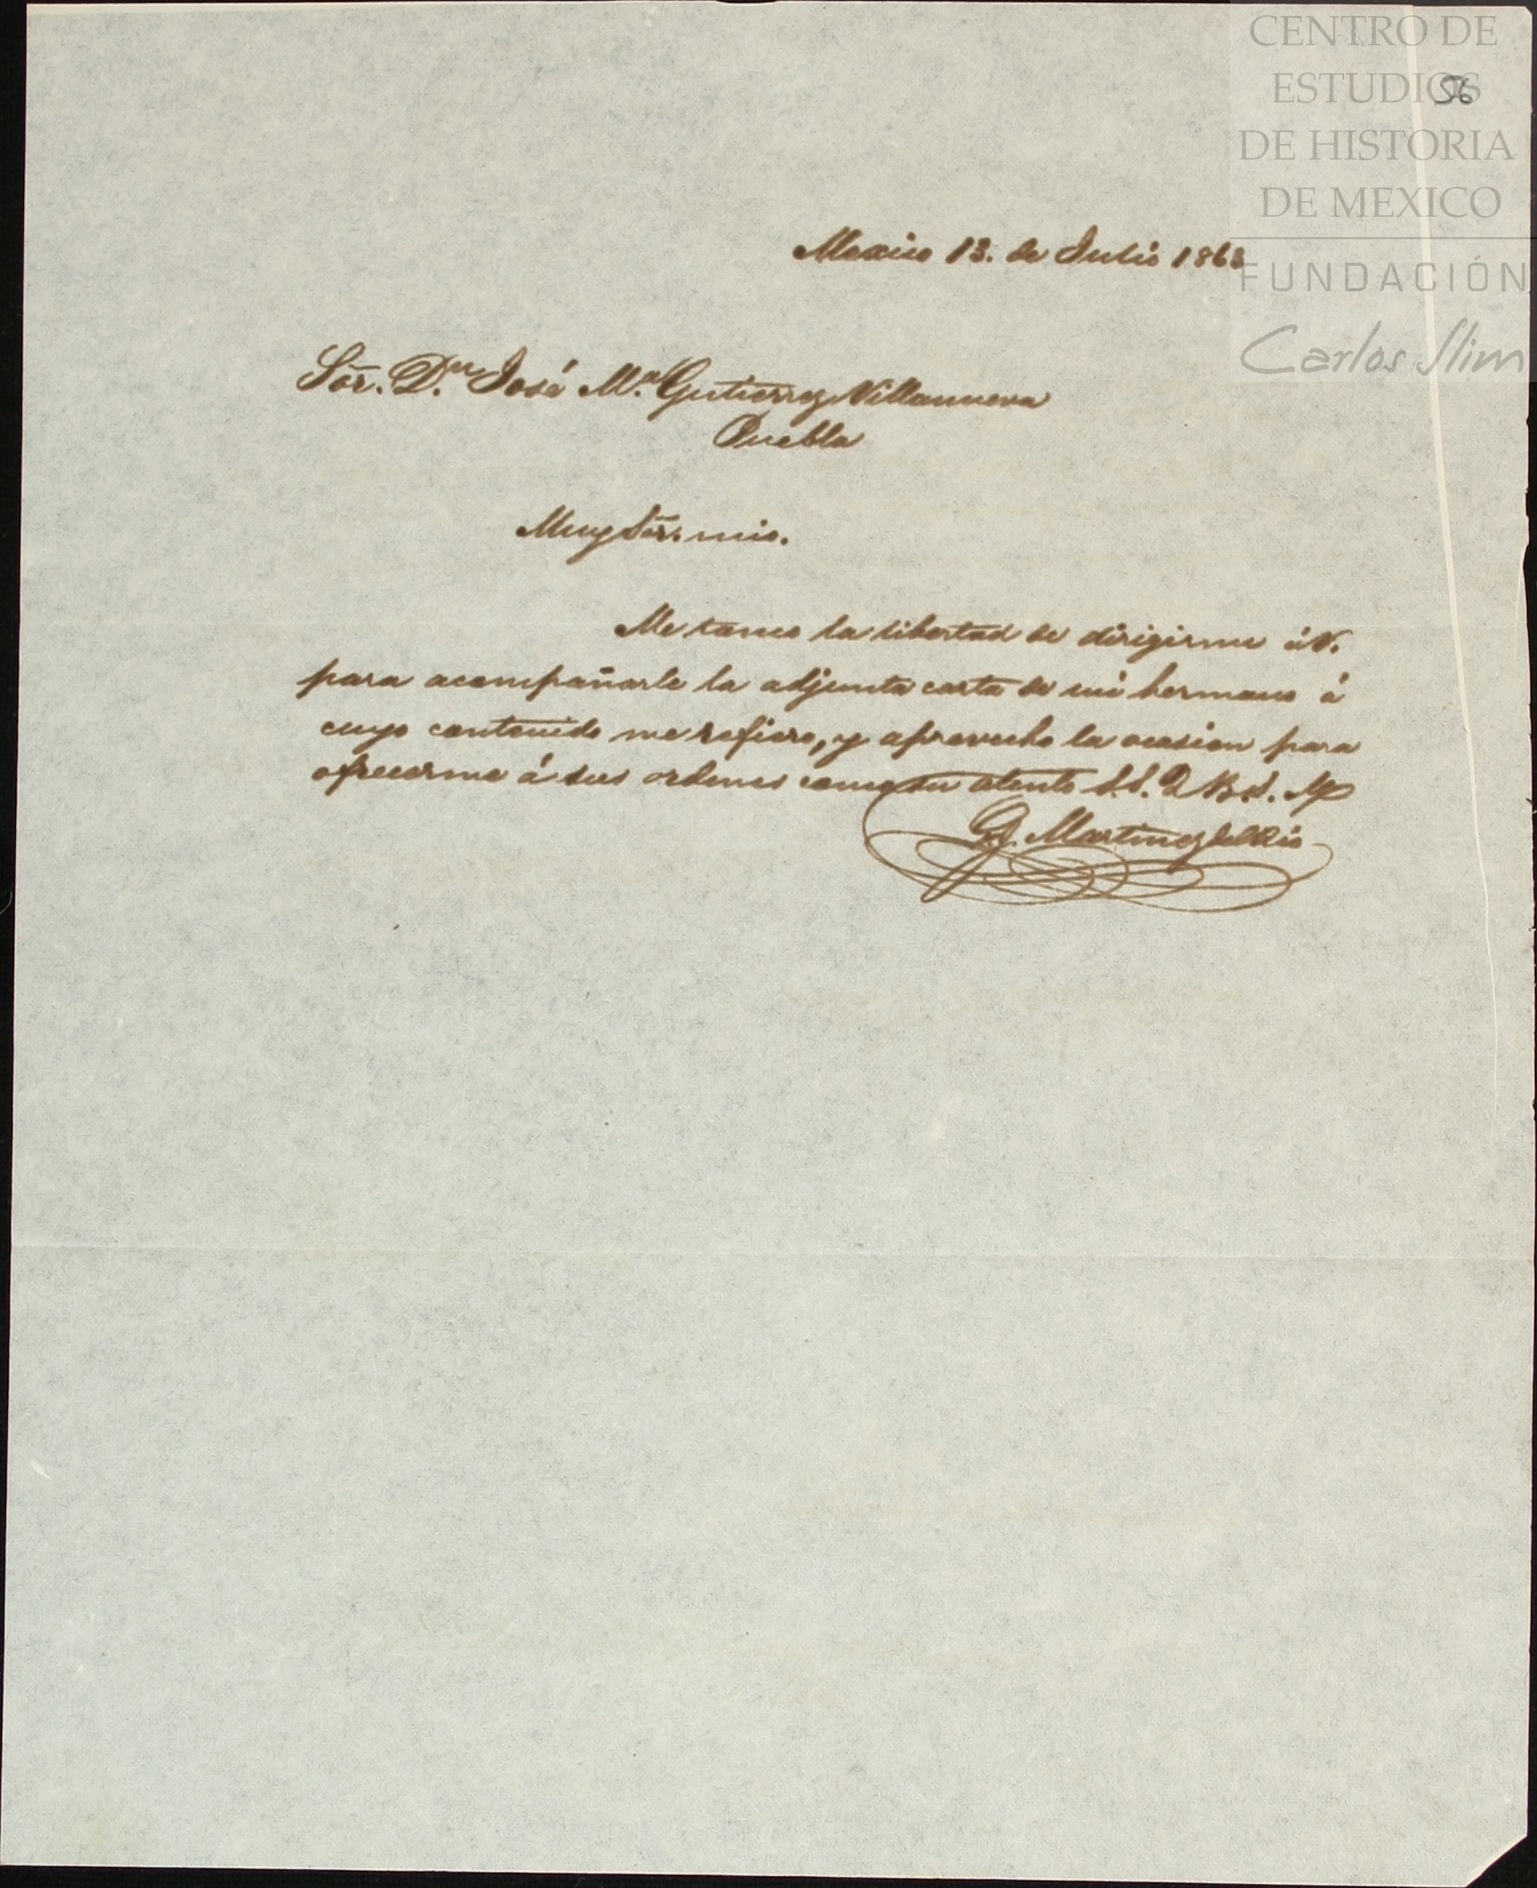 CENTRO DE
ESTUDIOS
DE HISTORIA
DE MEXICO
FUNDACIÓN
Carlos Slim
56
Mexico 13. de Julio 1863
Sōr. D.ⁿ José M.ª Gutierrez Villanueva
Puebla
Muy Sōr. mio.
Me tomo la libertad de dirigirme á V.
para acompañarle la adjunta carta de mi hermano á
cuyo contenido me refiero, y aprovecho la ocasion para
ofrecerme á sus ordenes como su atento S.S. Q B. S. M
Martinez del Rio